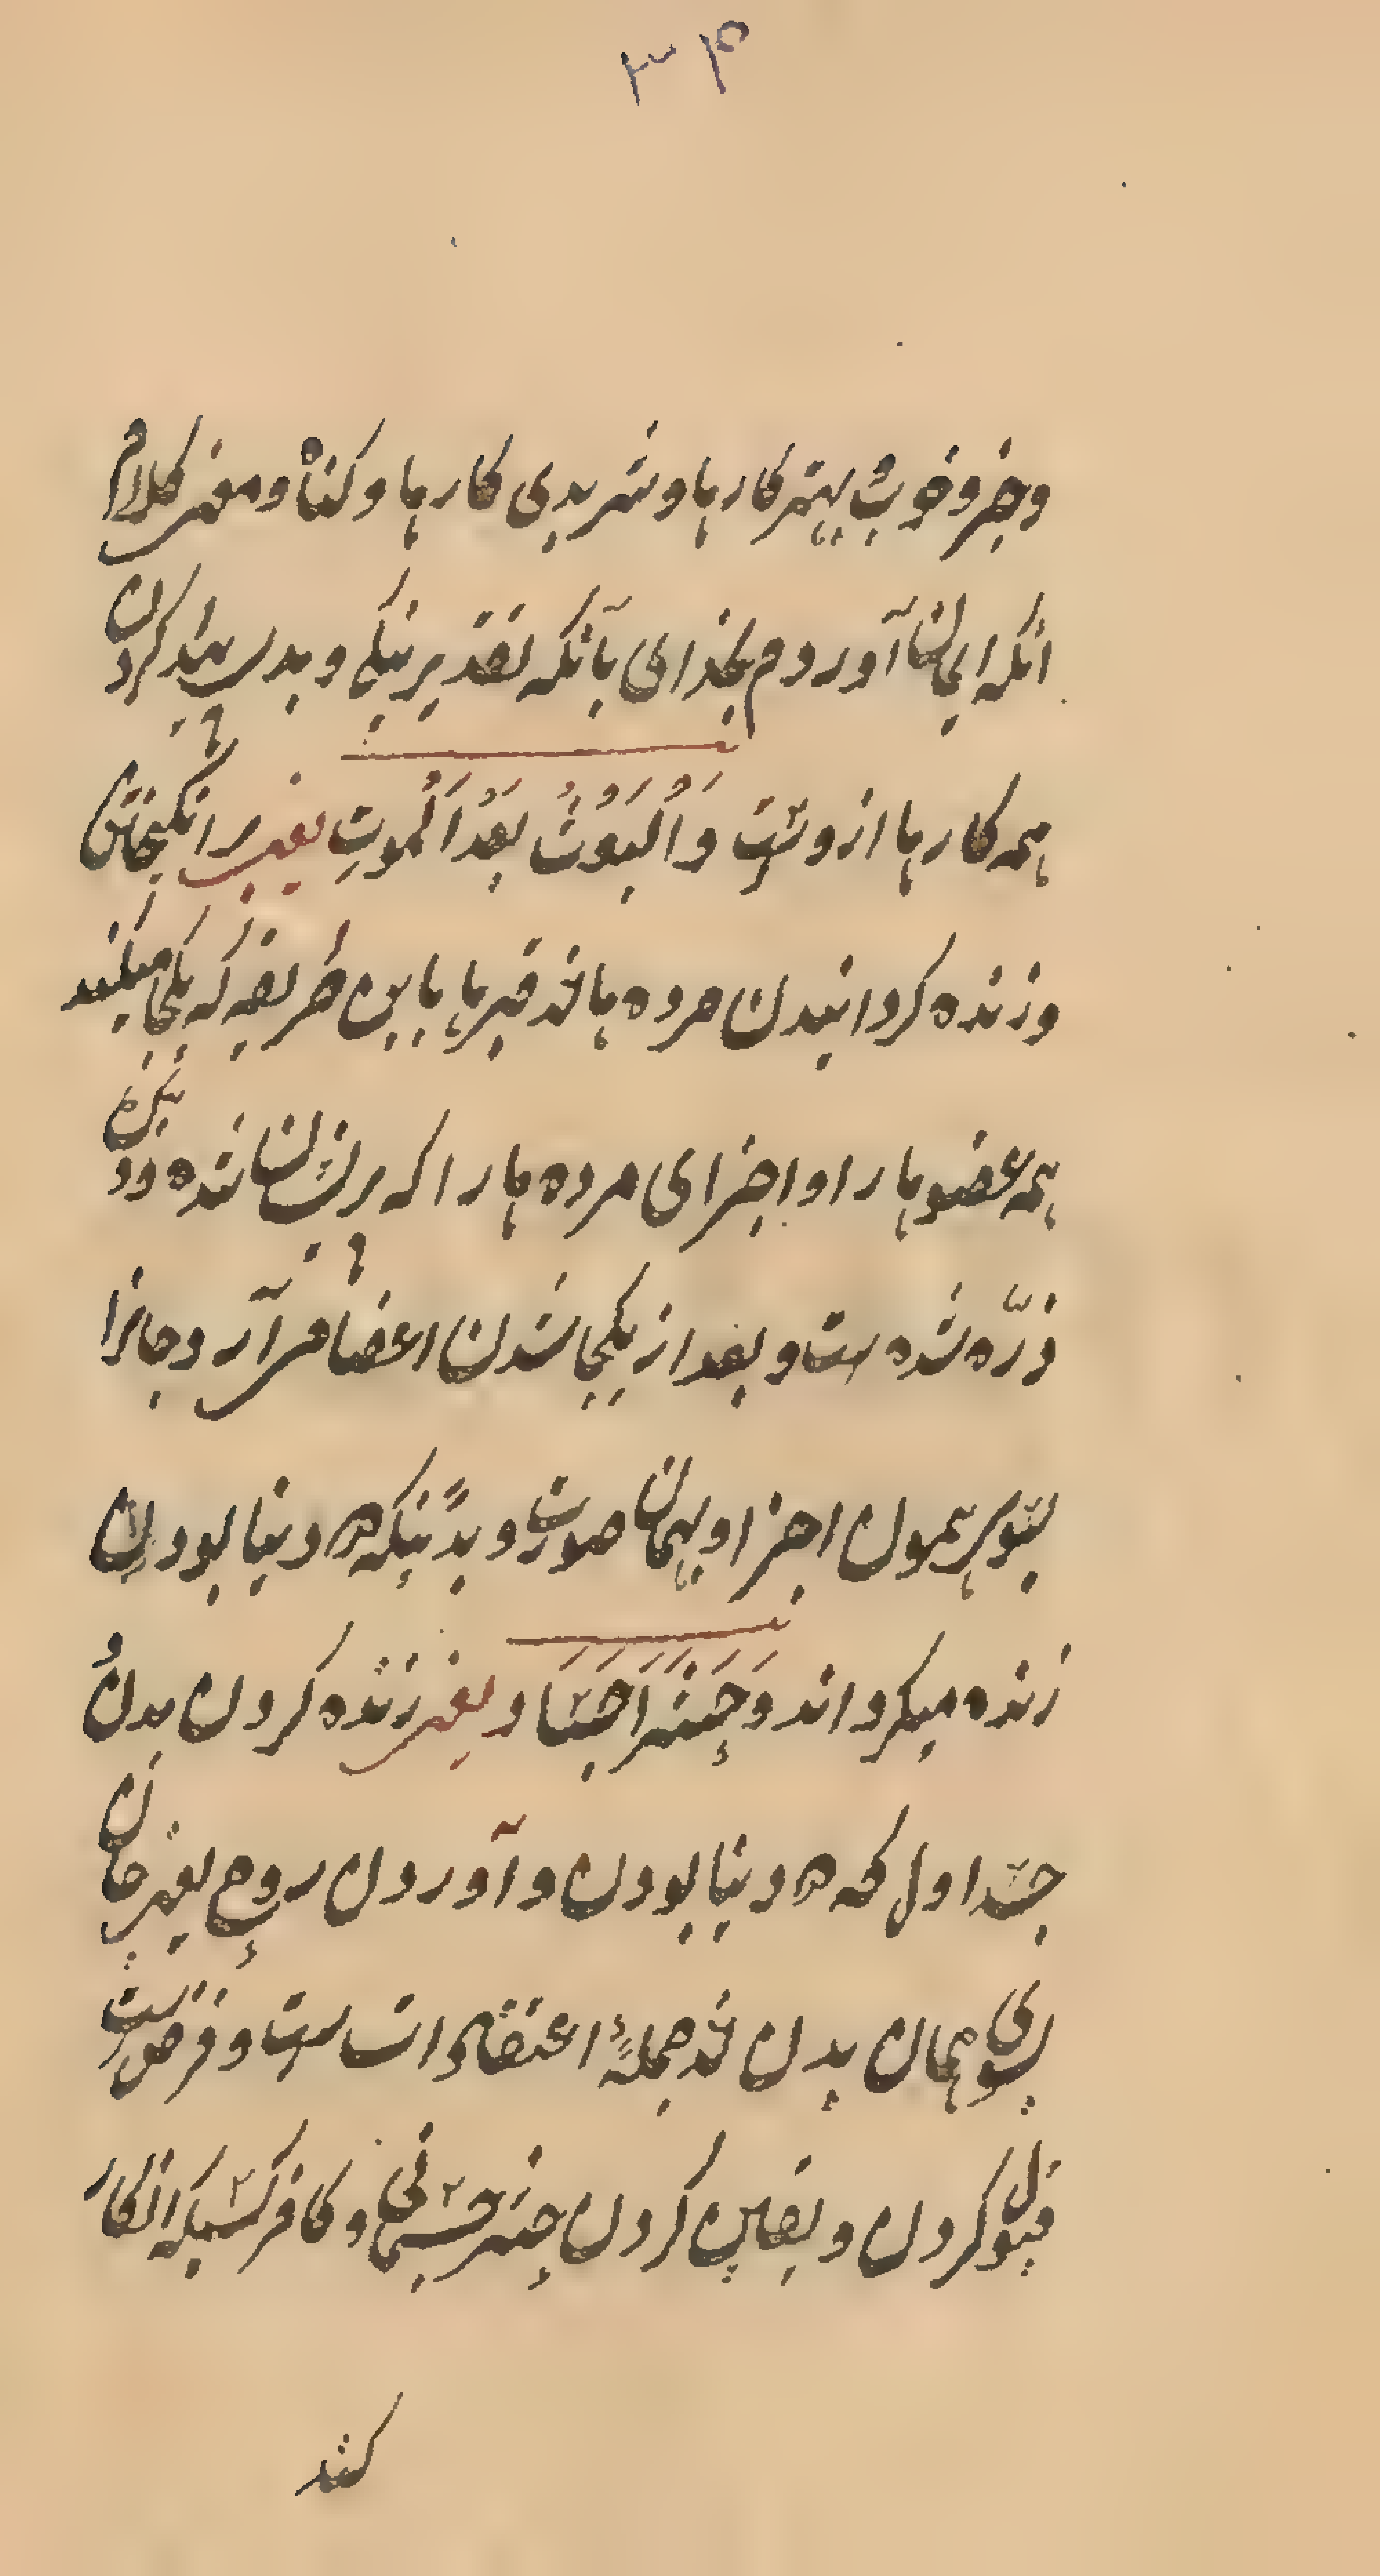 وخیر و خوب بهتر کارها و شر بدی کارها و کناه و معنی کلام
انکه ایمان آوردم بخدای بآنکه تقدیر نیکی و بدی پیدا کردن
همه کارها ازوست وَالْبَعْثُ بَعْدَ الْمَوتِ یعنی برانکیختن
و زنده کردانیدن مرده ها خد قبرها باین طریقه که یکجا میکند
همه عضوها را و اجزای مرده ها را که پریشان شده
ذرّه شده ست و بعد از یکجا شدن اعضا می آرد جانرا
بسوی همون اجزا و بهمان صورت و بدنیکه در دنیا بودن
زنده میکرداند و یعنی زنده کردن بدن
جسد اول که در دنیا بودن و آوردن روح یعنی جان
بسوی همان بدن خد جملهٔ اعتقادات ست و فرض ست
قبول کردن و یقین کردن و کافر انکار
کند